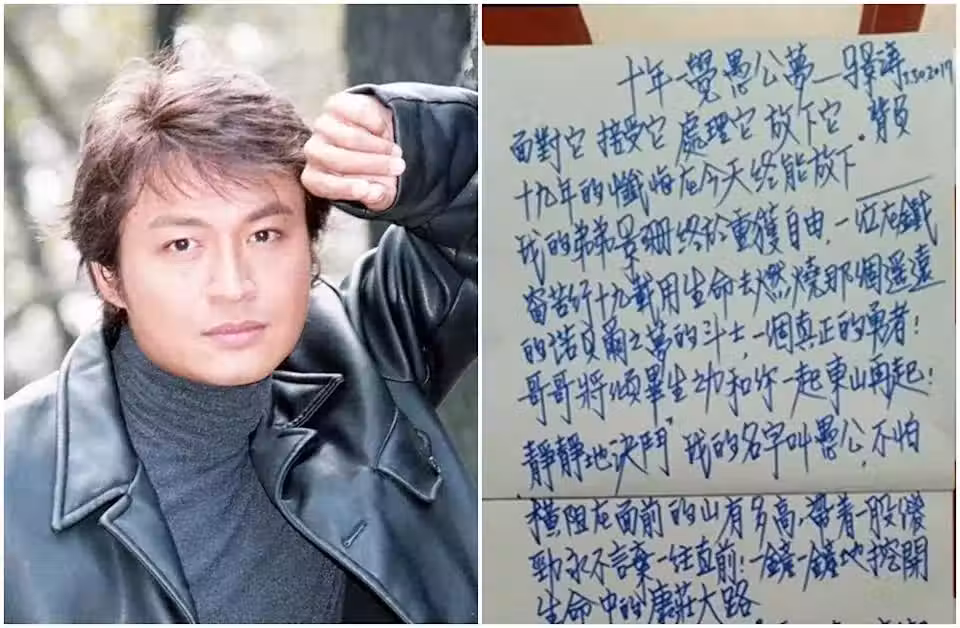 十年一覺愚公夢—馬景濤 5.30.2017
面對它 接受它 處理它 放下它。背負
十九年的懺悔在今天終能放下
我的弟弟景珊終於重獲自由,一位在鐵
窗苦行十九載用生命去燃燒那個遥遠
的諾貝爾之夢的斗士,一個真正的勇者!
哥哥將傾畢生功和你一起東山再起!
靜靜地決鬥,我的名字叫愚公,不怕
橫阻在面前的山有多高,帶着一股傻
勁永不言棄一往直前!一鏟一鏟地挖開
生命中的康莊大路